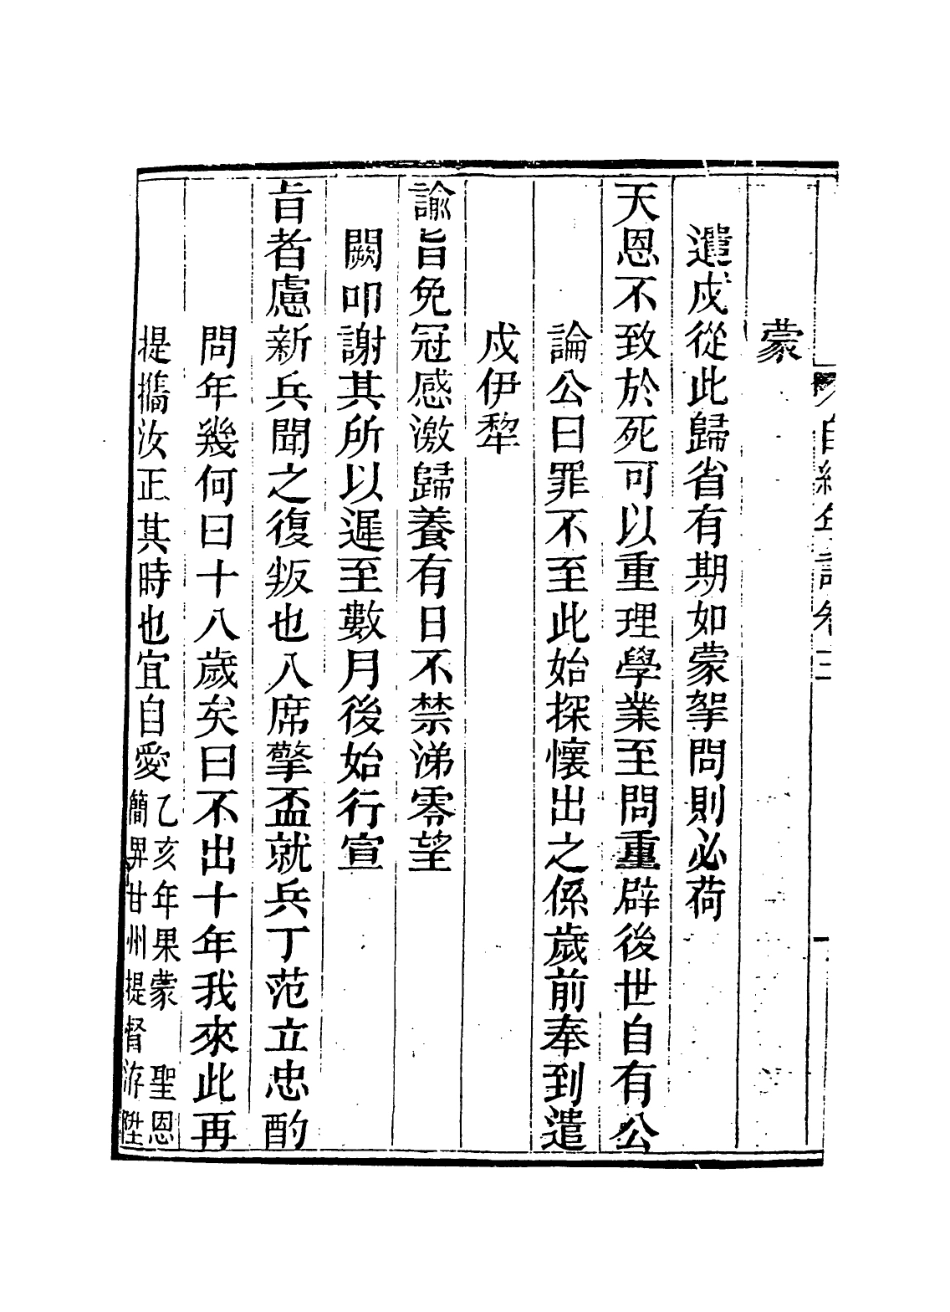 蒙
遣戍從此歸省有期如蒙拏問則必荷
天恩不致於死可以重理學業至問重辟後世自有公
論公曰罪不至此始探懷出之係歲前奉到遣
戍伊犂
諭旨免冠感激歸養有日不禁涕零望
闕叩謝其所以遲至數月後始行宣
旨者慮新兵聞之復叛也入席擎盃就兵丁范立忠酌
問年幾何曰十八歲矣曰不出十年我來此再
提攜汝正其時也宜自愛
乙亥年果蒙 聖恩
簡畀甘州提督游陞
自編年譜卷二